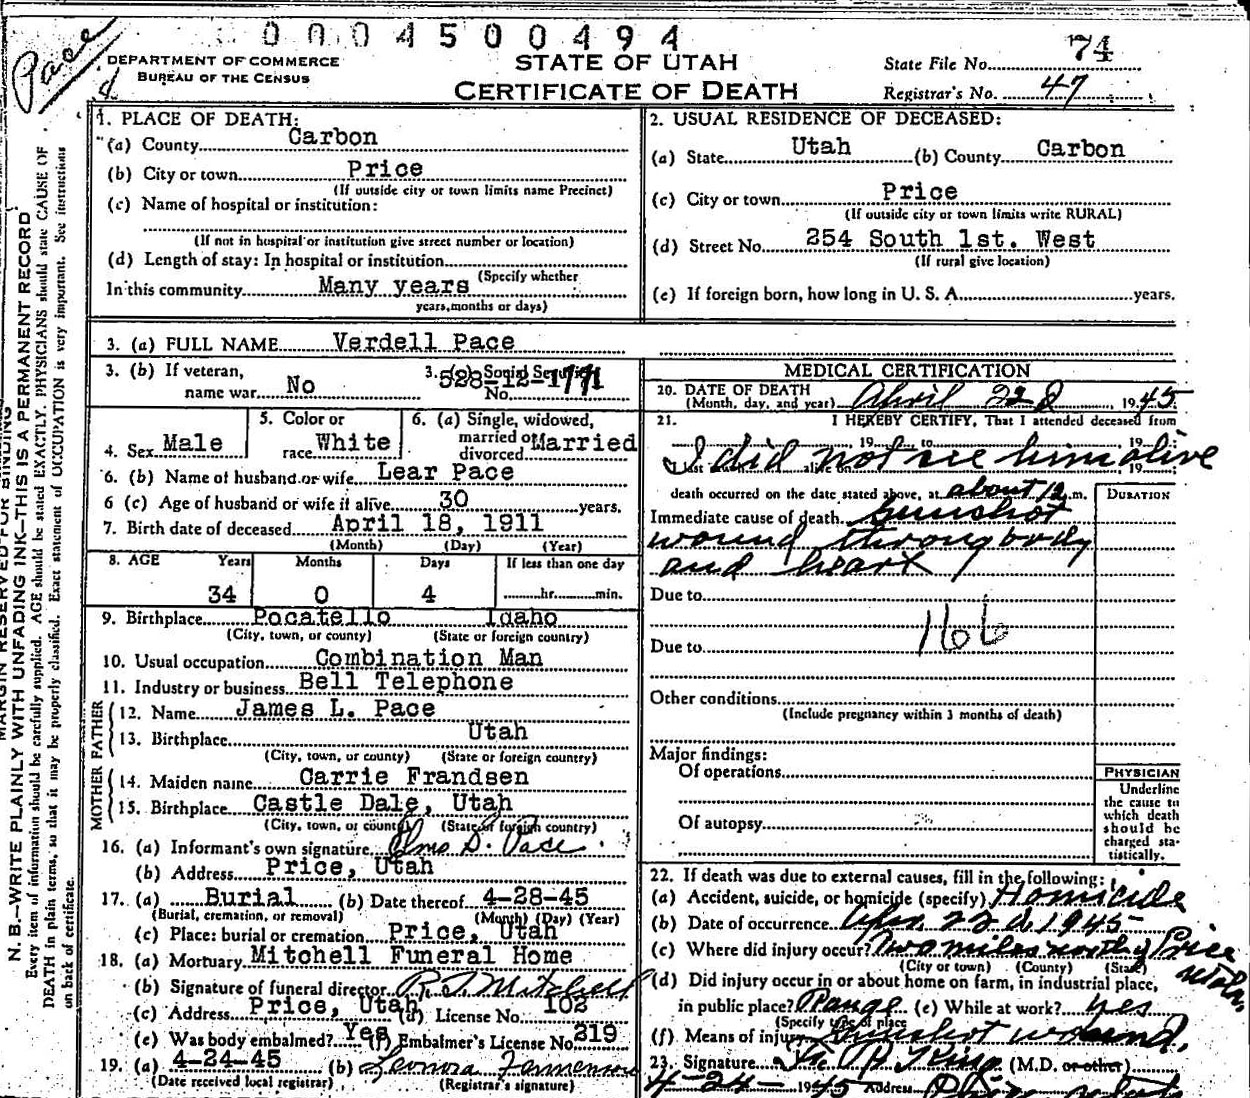 Pace
0004500494
DEPARTMENT OF COMMERCE
BUREAU OF THE CENSUS
STATE OF UTAH
CERTIFICATE OF DEATH
State File No. 74
Registrar's No. 47
MARGIN RESERVED FOR BINDING
N. B.—WRITE PLAINLY WITH UNFADING INK—THIS IS A PERMANENT RECORD
Every item of information should be carefully supplied. AGE should be stated EXACTLY. PHYSICIANS should state CAUSE OF
DEATH in plain terms, so that it may be properly classified. Exact statement of OCCUPATION is very important. See instructions
on back of certificate.
1. PLACE OF DEATH:
(a) County Carbon
(b) City or town Price
(If outside city or town limits name Precinct)
(c) Name of hospital or institution:
(If not in hospital or institution give street number or location)
(d) Length of stay: In hospital or institution
(Specify whether
In this community Many years
years, months or days)
2. USUAL RESIDENCE OF DECEASED:
(a) State Utah (b) County Carbon
(c) City or town Price
(If outside city or town limits write RURAL)
(d) Street No. 254 South 1st. West
(If rural give location)
(e) If foreign born, how long in U. S. A. years.
3. (a) FULL NAME Verdell Pace
3. (b) If veteran, name war No
3. (c) Social Security No.
4. Sex Male
5. Color or race White
6. (a) Single, widowed, married or divorced Married
6. (b) Name of husband or wife Lear Pace
6 (c) Age of husband or wife if alive 30 years.
7. Birth date of deceased April 18, 1911
(Month) (Day) (Year)
8. AGE Years Months Days If less than one day
34 0 4 hr. min.
9. Birthplace Pocatello Idaho
(City, town, or county) (State or foreign country)
10. Usual occupation Combination Man
11. Industry or business Bell Telephone
FATHER
12. Name James L. Pace
13. Birthplace Utah
(City, town, or county) (State or foreign country)
MOTHER
14. Maiden name Carrie Frandsen
15. Birthplace Castle Dale, Utah
(City, town, or county) (State or foreign country)
16. (a) Informant's own signature D. Pace
(b) Address Price, Utah
17. (a) Burial (b) Date thereof 4-28-45
(Burial, cremation, or removal) (Month) (Day) (Year)
(c) Place: burial or cremation Price, Utah
18. (a) Mortuary Mitchell Funeral Home
(b) Signature of funeral director Mitchell
(c) Address Price, Utah (d) License No. 102
(e) Was body embalmed? Yes (f) Embalmer's License No. 219
19. (a) 4-24-45 (b) Leonora
(Date received local registrar) (Registrar's signature)
MEDICAL CERTIFICATION
20. DATE OF DEATH
(Month, day, and year) April 22d, 1945.
21. I HEREBY CERTIFY, That I attended deceased from
I did not see him alive
death occurred on the date stated above, at about 12 m.
DURATION
Immediate cause of death Gunshot
wound through body
and heart
Due to
166
Due to
Other conditions
(Include pregnancy within 3 months of death)
Major findings:
Of operations
Of autopsy
PHYSICIAN
Underline
the cause to
which death
should be
charged sta-
tistically.
22. If death was due to external causes, fill in the following:
(a) Accident, suicide, or homicide (specify) Homicide
(b) Date of occurrence Apr. 22d, 1945
(c) Where did injury occur? Two miles north of Price Utah.
(City or town) (County) (State)
(d) Did injury occur in or about home on farm, in industrial place,
in public place? Range (e) While at work? yes
(Specify type of place
(f) Means of injury Gunshot wound.
23. Signature King (M.D. or other)
4-24-1945 Address Price, Utah